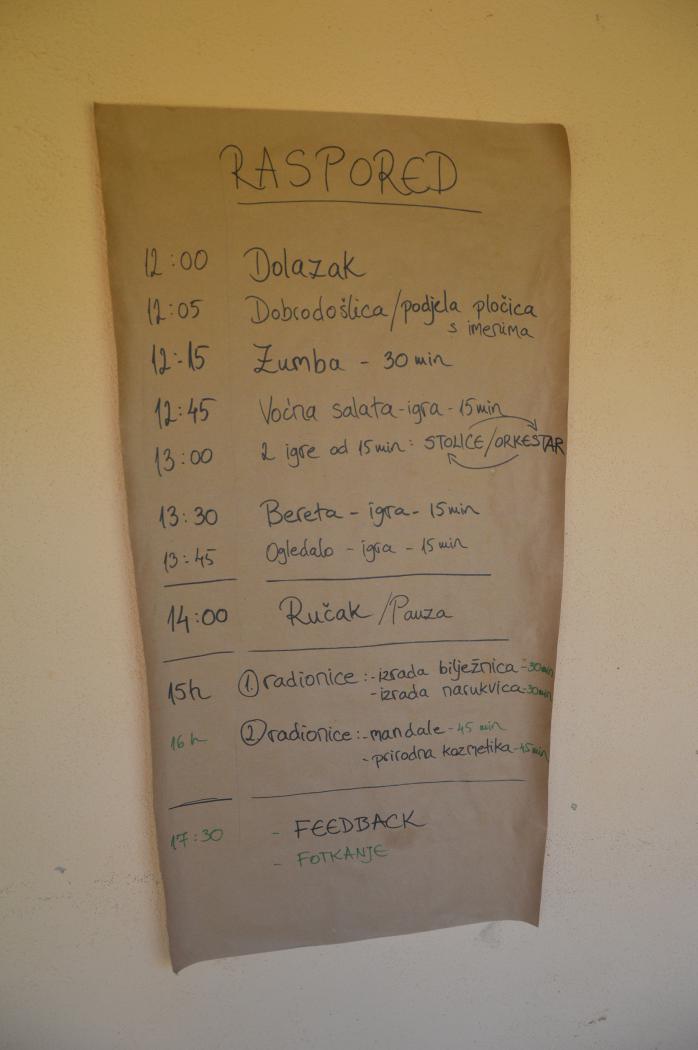 RASPORED
12:00 Dolazak
12:05 Dobrodošlica/podjela pločica
s imenima
12:15 Zumba - 30 min
12:45 Voćna salata-igra-15min
13:00 2 igre od 15min: STOLICE/ORKESTAR
13:30 Bereta - igra - 15min
13:45 Ogledalo - igra - 15min
14:00 Ručak /Pauza
15h 1. radionice:-izrada bilježnica-30min
-izrada narukvica-30min
16h 2 radionice:-mandale-45 min
-prirodna kozmetika-45min
17:30 - FEEDBACK
- FOTKANJE